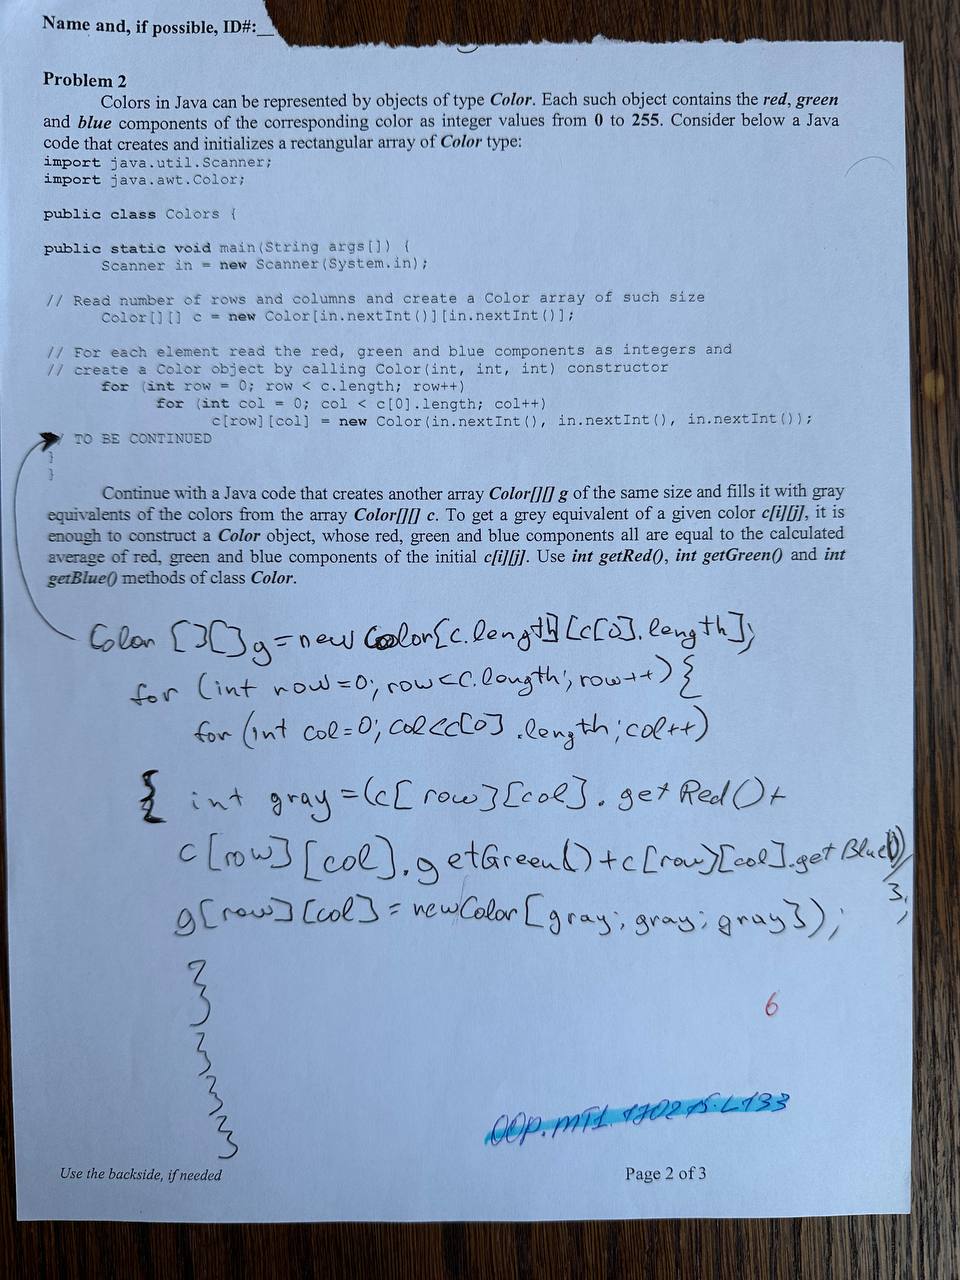 Name and, if possible, ID#:_
Problem 2
Colors in Java can be represented by objects of type Color. Each such object contains the red, green
and blue components of the corresponding color as integer values from 0 to 255. Consider below a Java
code that creates and initializes a rectangular array of Color type:
import java.util.Scanner;
import java.awt.Color;
public class Colors {
public static void main(String args[]) {
Scanner in = new Scanner(System.in);
// Read number of rows and columns and create a Color array of such size
Color[][] c = new Color[in.nextInt()][in.nextInt()];
// For each element read the red, green and blue components as integers and
// create a Color object by calling Color(int, int, int) constructor
for (int row = 0; row < c.length; row++)
for (int col = 0; col < c[0].length; col++)
c[row][col] = new Color(in.nextInt(), in.nextInt(), in.nextInt());
TO BE CONTINUED
}
}
Continue with a Java code that creates another array Color[][] g of the same size and fills it with gray
equivalents of the colors from the array Color[][] c. To get a grey equivalent of a given color c[i][j], it is
enough to construct a Color object, whose red, green and blue components all are equal to the calculated
average of red, green and blue components of the initial c[i][j]. Use int getRed(), int getGreen() and int
getBlue() methods of class Color.
Color [][] g = new Color[c.length][c[0].length];
for (int row=0; row<c.length; row++) {
for (int col=0; col<c[0].length; col++)
{ int gray = (c[row][col].getRed()+
c[row][col].getGreen()+c[row][col].getBlue())/
3;
g[row][col] = new Color[gray; gray; gray});
}
}
}
}
6
OOP.MT1.170215.L133
Use the backside, if needed
Page 2 of 3